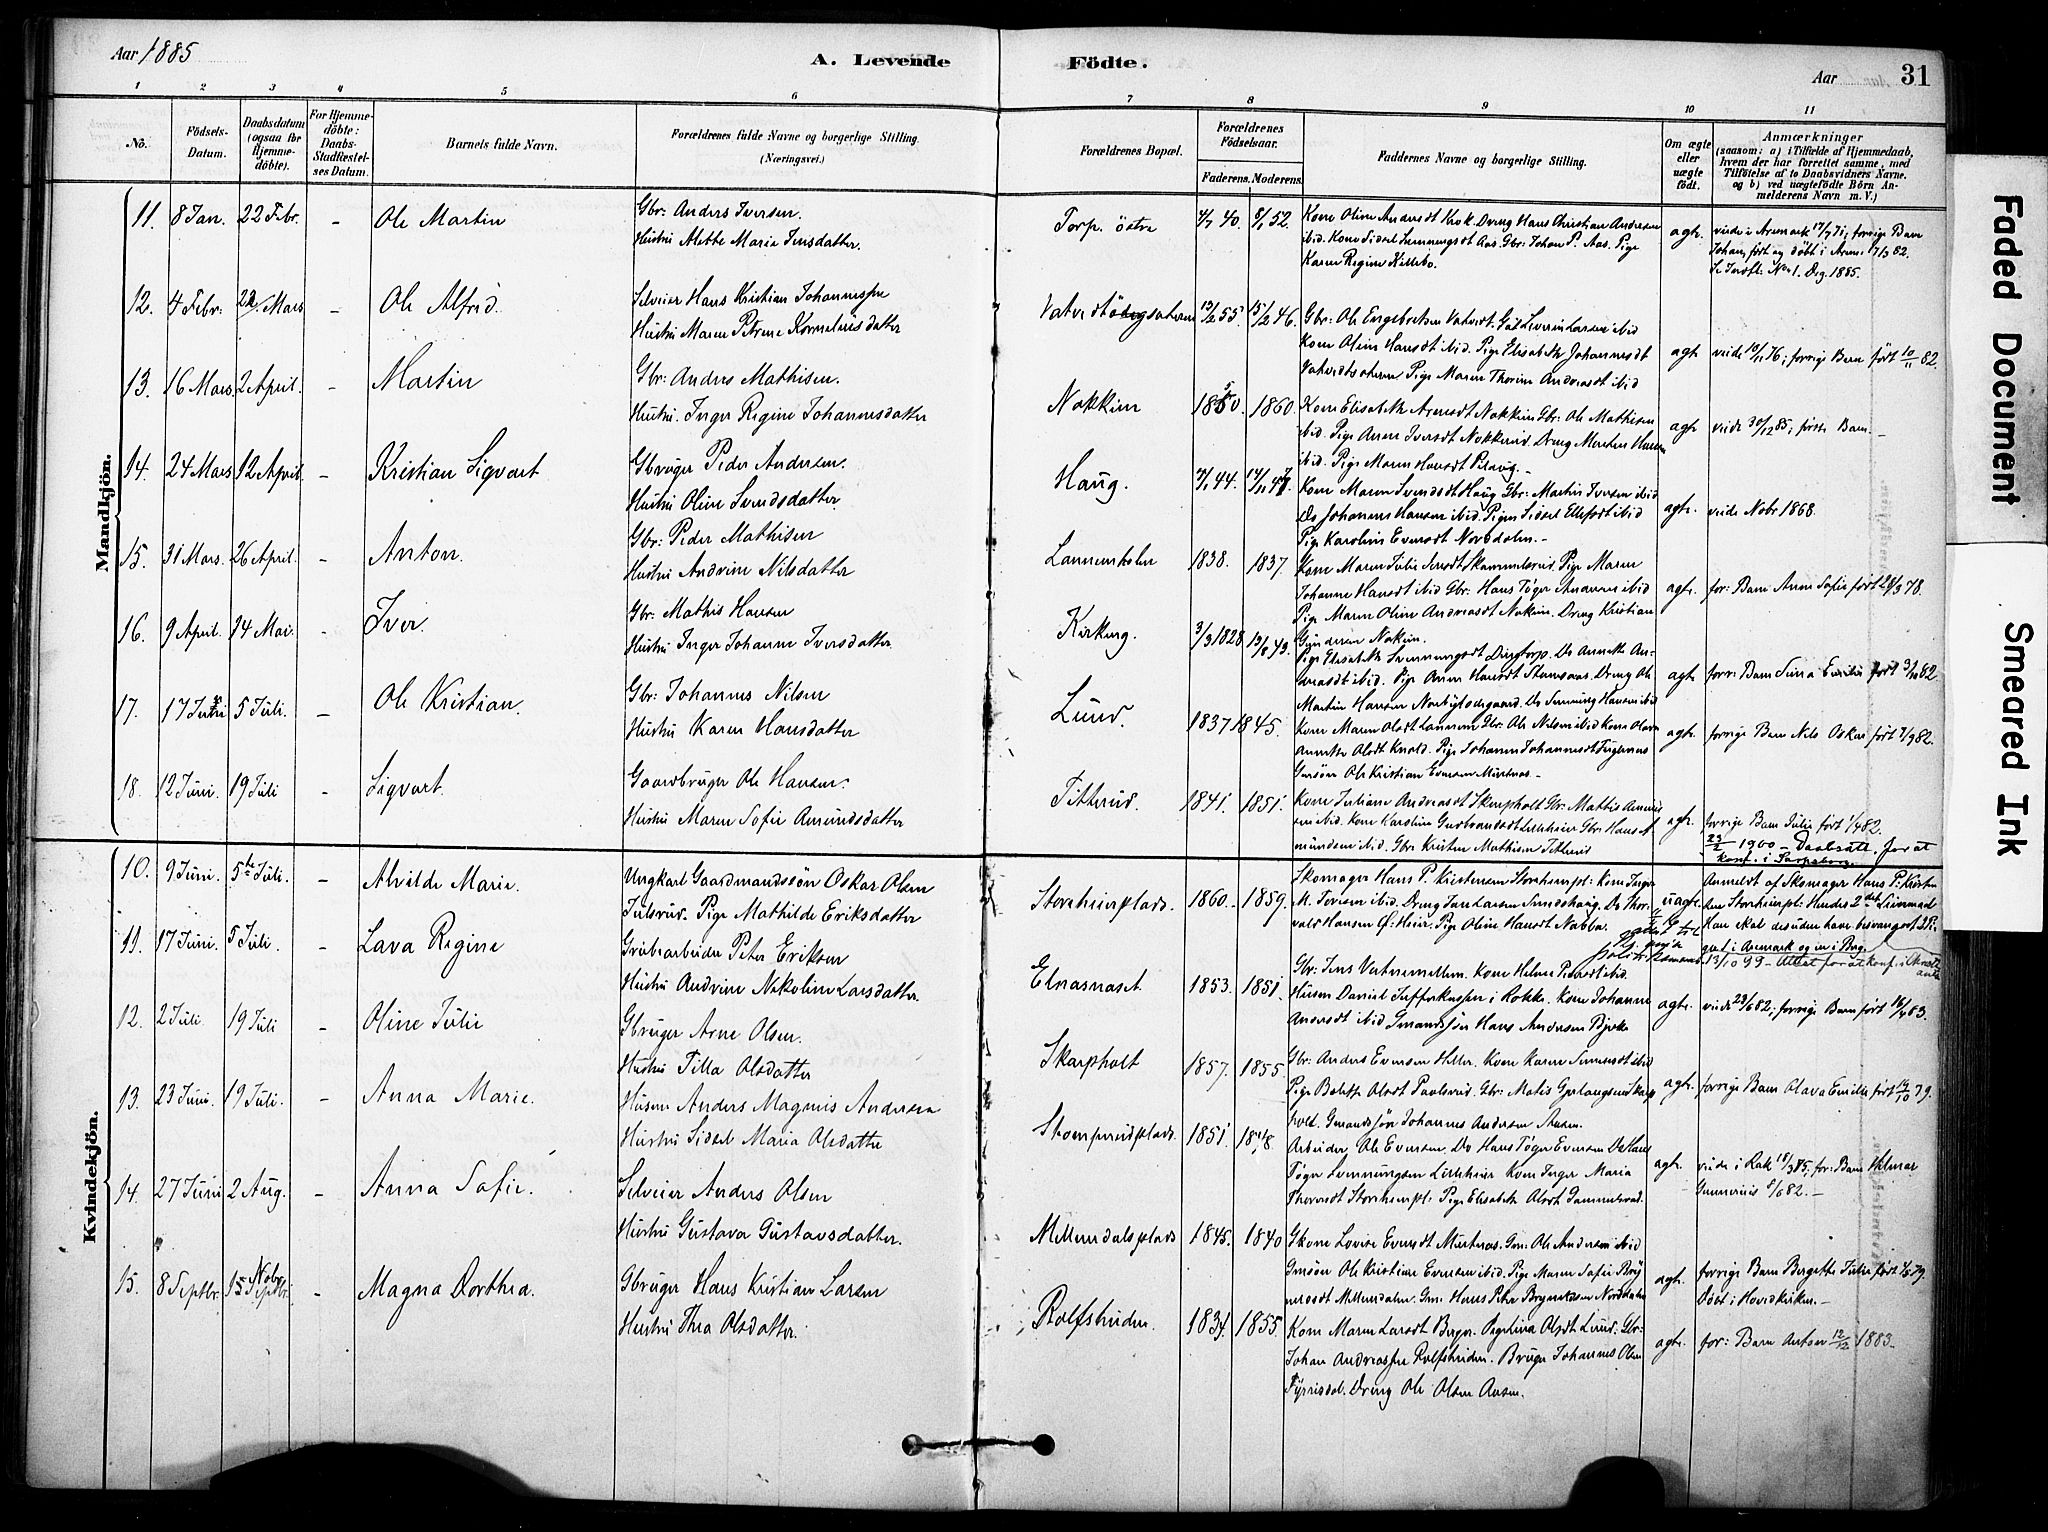 Aar 1885
A. Levende
Födte.
Aar
31
1 2 3 4 5 6 7 8 9 10 11
No.
Födsels-
Datum.
Daabsdatum
(ogsaa for
Hjemme-
döbte).
For Hjemme-
döbte:
Daabs-
Stadfæstel-
ses Datum.
Barnets fulde Navn.
Forældrenes fulde Navne og borgerlige Stilling.
(Næringsvei.)
Forældrenes Bopæl.
Forældrenes
Födselsaar.
Faderens. Moderens.
Faddernes Navne og borgerlige Stilling.
Om ægte
eller
uægte
födt.
Anmærkninger
(saasom: a) i Tilfælde af Hjemmedaab,
hvem der har forrettet samme, med
Tilföielse af to Daabsvidners Navne,
og b) ved uægtefödte Börn An-
melderens Navn m. V.)
Mandkjön.
11. 8 Jan. 22 Febr. - Ole Martin
Gbr: Anders Iversen.
Hustru Alette Maria Jensdatter.
Torp. östre 40. 52.
Kone Oline Andersdt Krok. Dreng Hans Christian Andersen
ibid. Kone Sidsel Svenningsdt Aas. Gbr: Johan P. Aas. Pige
Karen Regine Killebo.
agte.
viede i Aremark 17/7 71; forrige Barn
Johan, født og döbt i Arem. 17/3 82.
12. 4 Febr: 22 Mars - Ole Alfred.
Selveier Hans Kristian Johannesen
Hustru Maren Petrine Kornelius datter
55. 15/2 46.
Gbr: Ole Engebretsen Vatvedt.
Kone Oline Hansdt ibid. Pige Elisabeth Johannesdt
Pige Maren Thorine Andreasdt ibid
agte.
viede 76; forrige Barn født 10/11 82.
13. 16 Mars. 2 April. - Martin
Gbr: Andres Mathisen.
Hustru. Inger Regine Johannesdatter
Nokkim 1850. 1860.
Kone Elisabeth Arnesdt Nokkim Gbr: Ole Mathisen
ibid. Pige Anne Iversdt Nokkerud. Dreng Morten Hansen
ibid. Pige Maren Hansdt
agte
viede 30/12 85; første Barn.-
14. 24 Mars 12 April. - Kristian Sigvart
Gbruger Peder Andersen.
Hustru Oline Svendsdatter.
Haug. 44. 47.
Kone Maren Svendsdt Haug Gbr: Martin Iversen ibid
Do Johannes Hansen ibid.
Pige Karoline Eversdt Norddalen.-
agte.
viede Nobr 1868.
15. 31 Mars. 26 April. - Anton.
Gbr: Peder Mathisen
Hustru Andrine Nilsdatter
Lannemholm 1838. 1837.
Kone Maren Julie Pige Maren
Johanne Hansdt ibid Gbr: Hans Töger Andersen ibid
Pige Maren Oline Andreasdt Nokkim. Dreng Kristian
Gundersen Nokkim.
agte.
for: Barn Anna Sofie født 78.
16. 9 April. 14 Mai. - Iver.
Gbr: Mathis Hansen
Hustru Inger Johanne Iversdatter
Kirkeng. 3/3 1828 13/8 43.
Pige Elisabeth Svenningsdt Dingtorp. Do Annette An-
dreasdt ibid. Pige Anne Hansdt Stomsaas. Dreng Ole
Martin Hansen Do Svenning Hansen ibid
agte.
forr: Barn Emilie født 3/10 82
17. 17 Juni 5 Juli. - Ole Kristian.
Gbr: Johannes Nilsen
Hustru Karen Hansdatter
Lund. 1837 1845.
Kone Maren Olsdt Lannem Gbr: Ole Nilsen ibid Kone
Annette Olsdt Knold. Pige Johanne Johannesdt
Gmsön Ole Kristian Eversen
agte.
forrige Barn Nils Oskar født 7/9 82.
18. 12 Juni. 19 Juli - Sigvart.
Gaardbruger Ole Hansen.
Hustru Maren Sofie Amundsdatter
Titterud. 1841. 1851.
Kone Juliane Andreasdt Skarpholt Gbr: Mattis
ibid. Kone Karoline Gulbrandsdt Lilleheier Gbr: Hans A
mundsen ibid. Gbr: Kristen Mathisen Titterud
agte.
forrige Barn Julie født 1/4 82.
23/2 1900 - Daabsatt. for at
konf. i Sarpsborg.
Kvindekjön.
10. 9 Juni. 5te Juli. - Alvilde Marie.
Ungkarl Gaardmandssön Oskar Olsen
Julsrud. Pige Mathilde Eriksdatter
Storeheierplads. 1860. 1859.
Skomager Hans P. Kristensen Storeheierpl: Kone Inger
M. Iversen ibid. Dreng Do Thor-
vald Hansen Ø. Heier. Pige Oline Hansdt Nabba.
uagte.
Anmeldt af Skomager Hans P. Kristen
sen Storeheierpl: Hendes 2det Leiermaal
Han skal desuden have besvangret 2 Pi-
ger i Aremark og en i Berg.
13/10 99 - Attest for at konf. i
11. 17 Juni. 5 Juli. - Lava Regine
Grubearbeider Peter Eriksen
Hustru Andrine Nikoline Larsdatter
Elnesnaset 1853. 1851.
Gbr: Jens Kone Helene
Husm Daniel i Rokke. Kone Johanne
Andersdt ibid Gmandssön Hans Andersen Bjerke
agte.
viede 23/6 82; forrige Barn født 83.
12. 2 Juli 19 Juli - Oline Julie
Gbruger Arne Olsen.
Hustru Tilla Olsdatter
Skarpholt 1857. 1855.
Gbr: Anders Evensen Heller. Kone Karen ibid
Pige Bolette Olsdt Paulsrud. Gbr: Matis Gjerlaugsen Skarp
holt. Gmandssön Johannes Andersen
agte.
forrige Barn Olava Emilie født 14/10 79.
13. 23 Juni. 19 Juli. - Anna Marie.
Husm Anders Magnus Andersen
Hustru Sidsel Maria Olsdatter
Skomperudplads 1851. 1848.
Arbeider Ole Eversen. Do Hans Töger Eversen Do Hans
Töger Svenningsen Lilleheier Kone Inger Maria
Storeheierpl: Pige Elisabeth Olsdt Gammelsrød.
agte.
viede i Rak. 18/3 75; for: Barn Hilmar
Gunnerius 8/6 82.-
14. 27 Juni 2 Aug. - Anna Sofie.
Selveier Anders Olsen
Hustru Gustava Gustavsdatter.
Mellemdalsplads 1845. 1840
Gkone Lovise Eversdt Gm: Ole Andersen ibid
Gmsön Ole Kristian Evensen ibid. Pige Maren Sofie
Mellemdalen. Gm: Hans Peter Brynildsen Norddalen
agte.
forrige Barn Bergette Julie født 79.
Döbt i Hovedkirken.-
15. 8 Septbr. 15 Nobr. - Magna Dorthea.
Gbruger Hans Kristian Larsen
Hustru Thea Olsdatter.
Rolfshuden. 1834. 1855.
Kone Maren Larsdt Berger. Pige Lina Olsdt Lund. Gbr:
Johan Andreassen Rolfshuden. Bruger Johannes Olsen
Fyrrisdal. Dreng Ole Olsen
agte.
for: Barn Anton 12/12 1883.
Faded Document
Smeared Ink